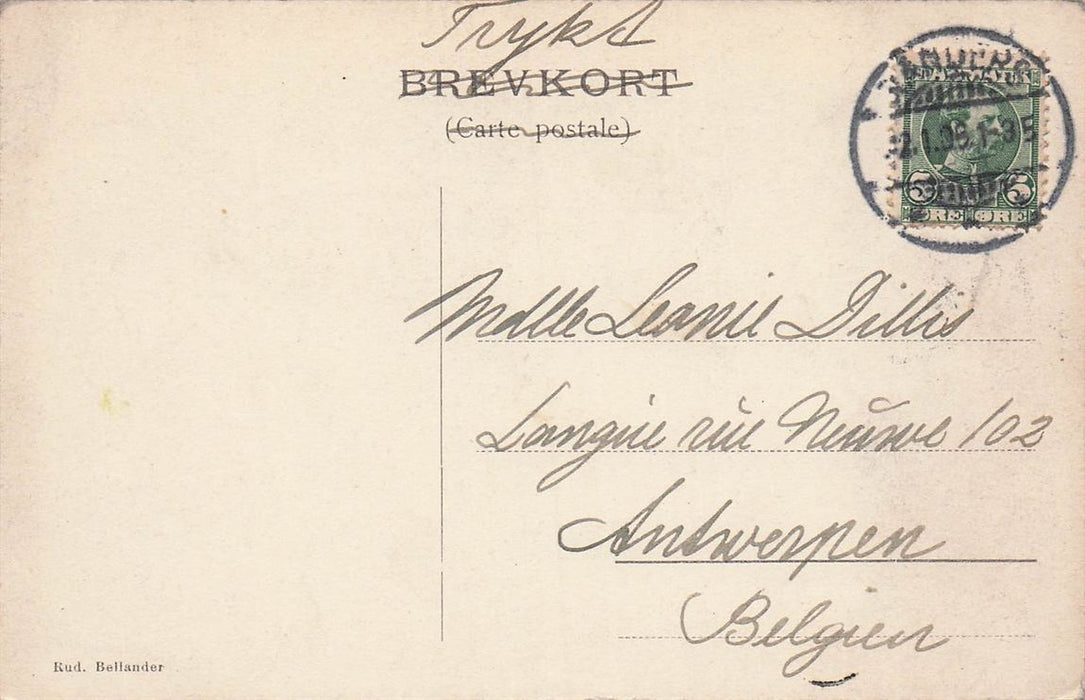 Trykt
BREVKORT
(Carte postale)
RANDERS
DANMARK
2.1.09.1-3 E
5 5
ØRE ØRE
Mdlle Leonie Dillis
Langue rue Neuwe 102
Antwerpen
Belgien
Rud. Bellander